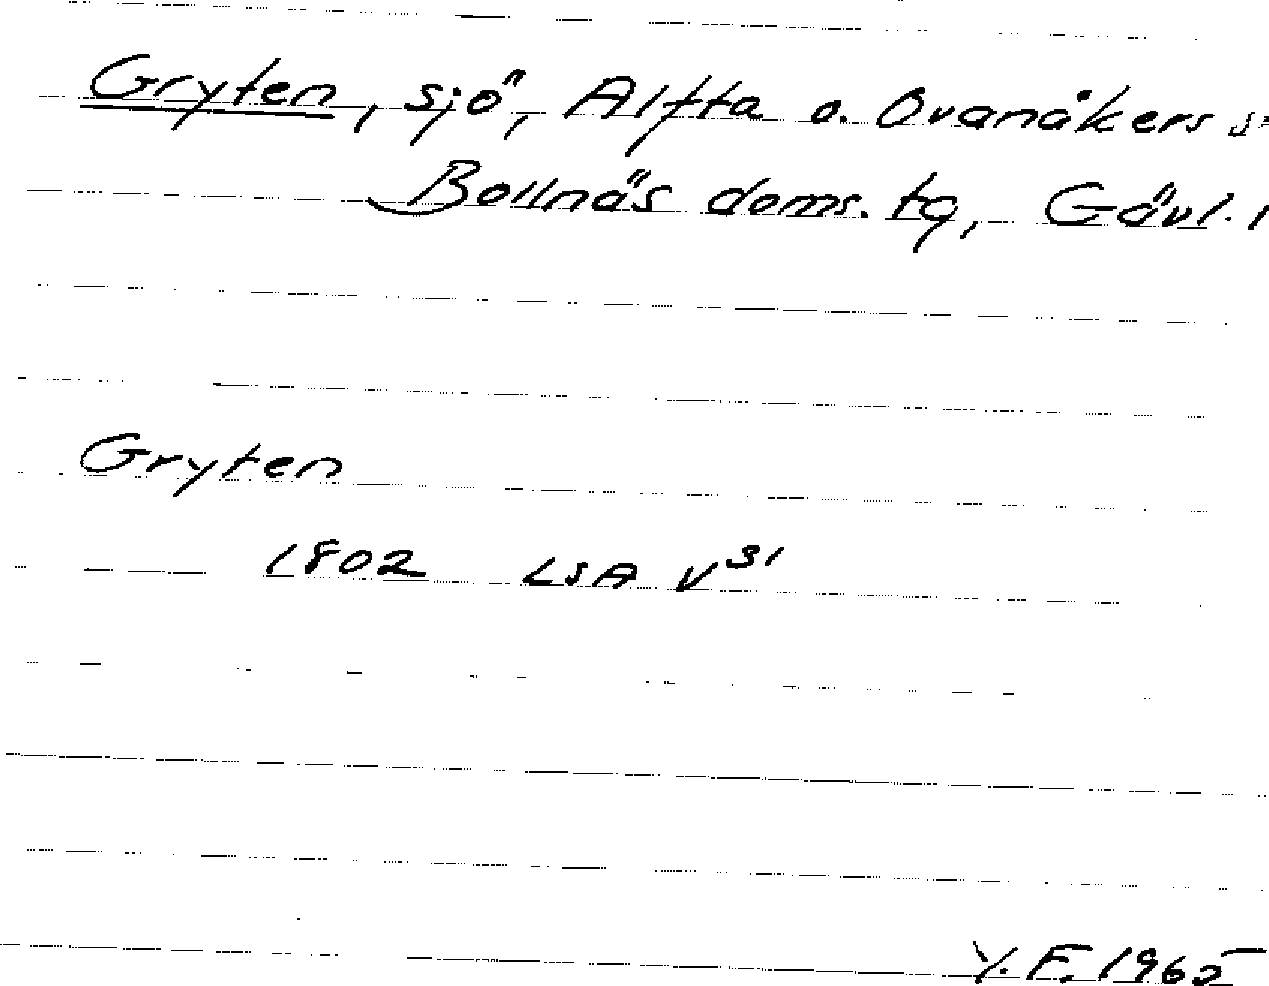 Gryten, sjö, Alfta o. Ovanåkers s:
Bollnäs doms. tg, Gävl. l
Gryten
1802 LSA V31
Y. F. 1965